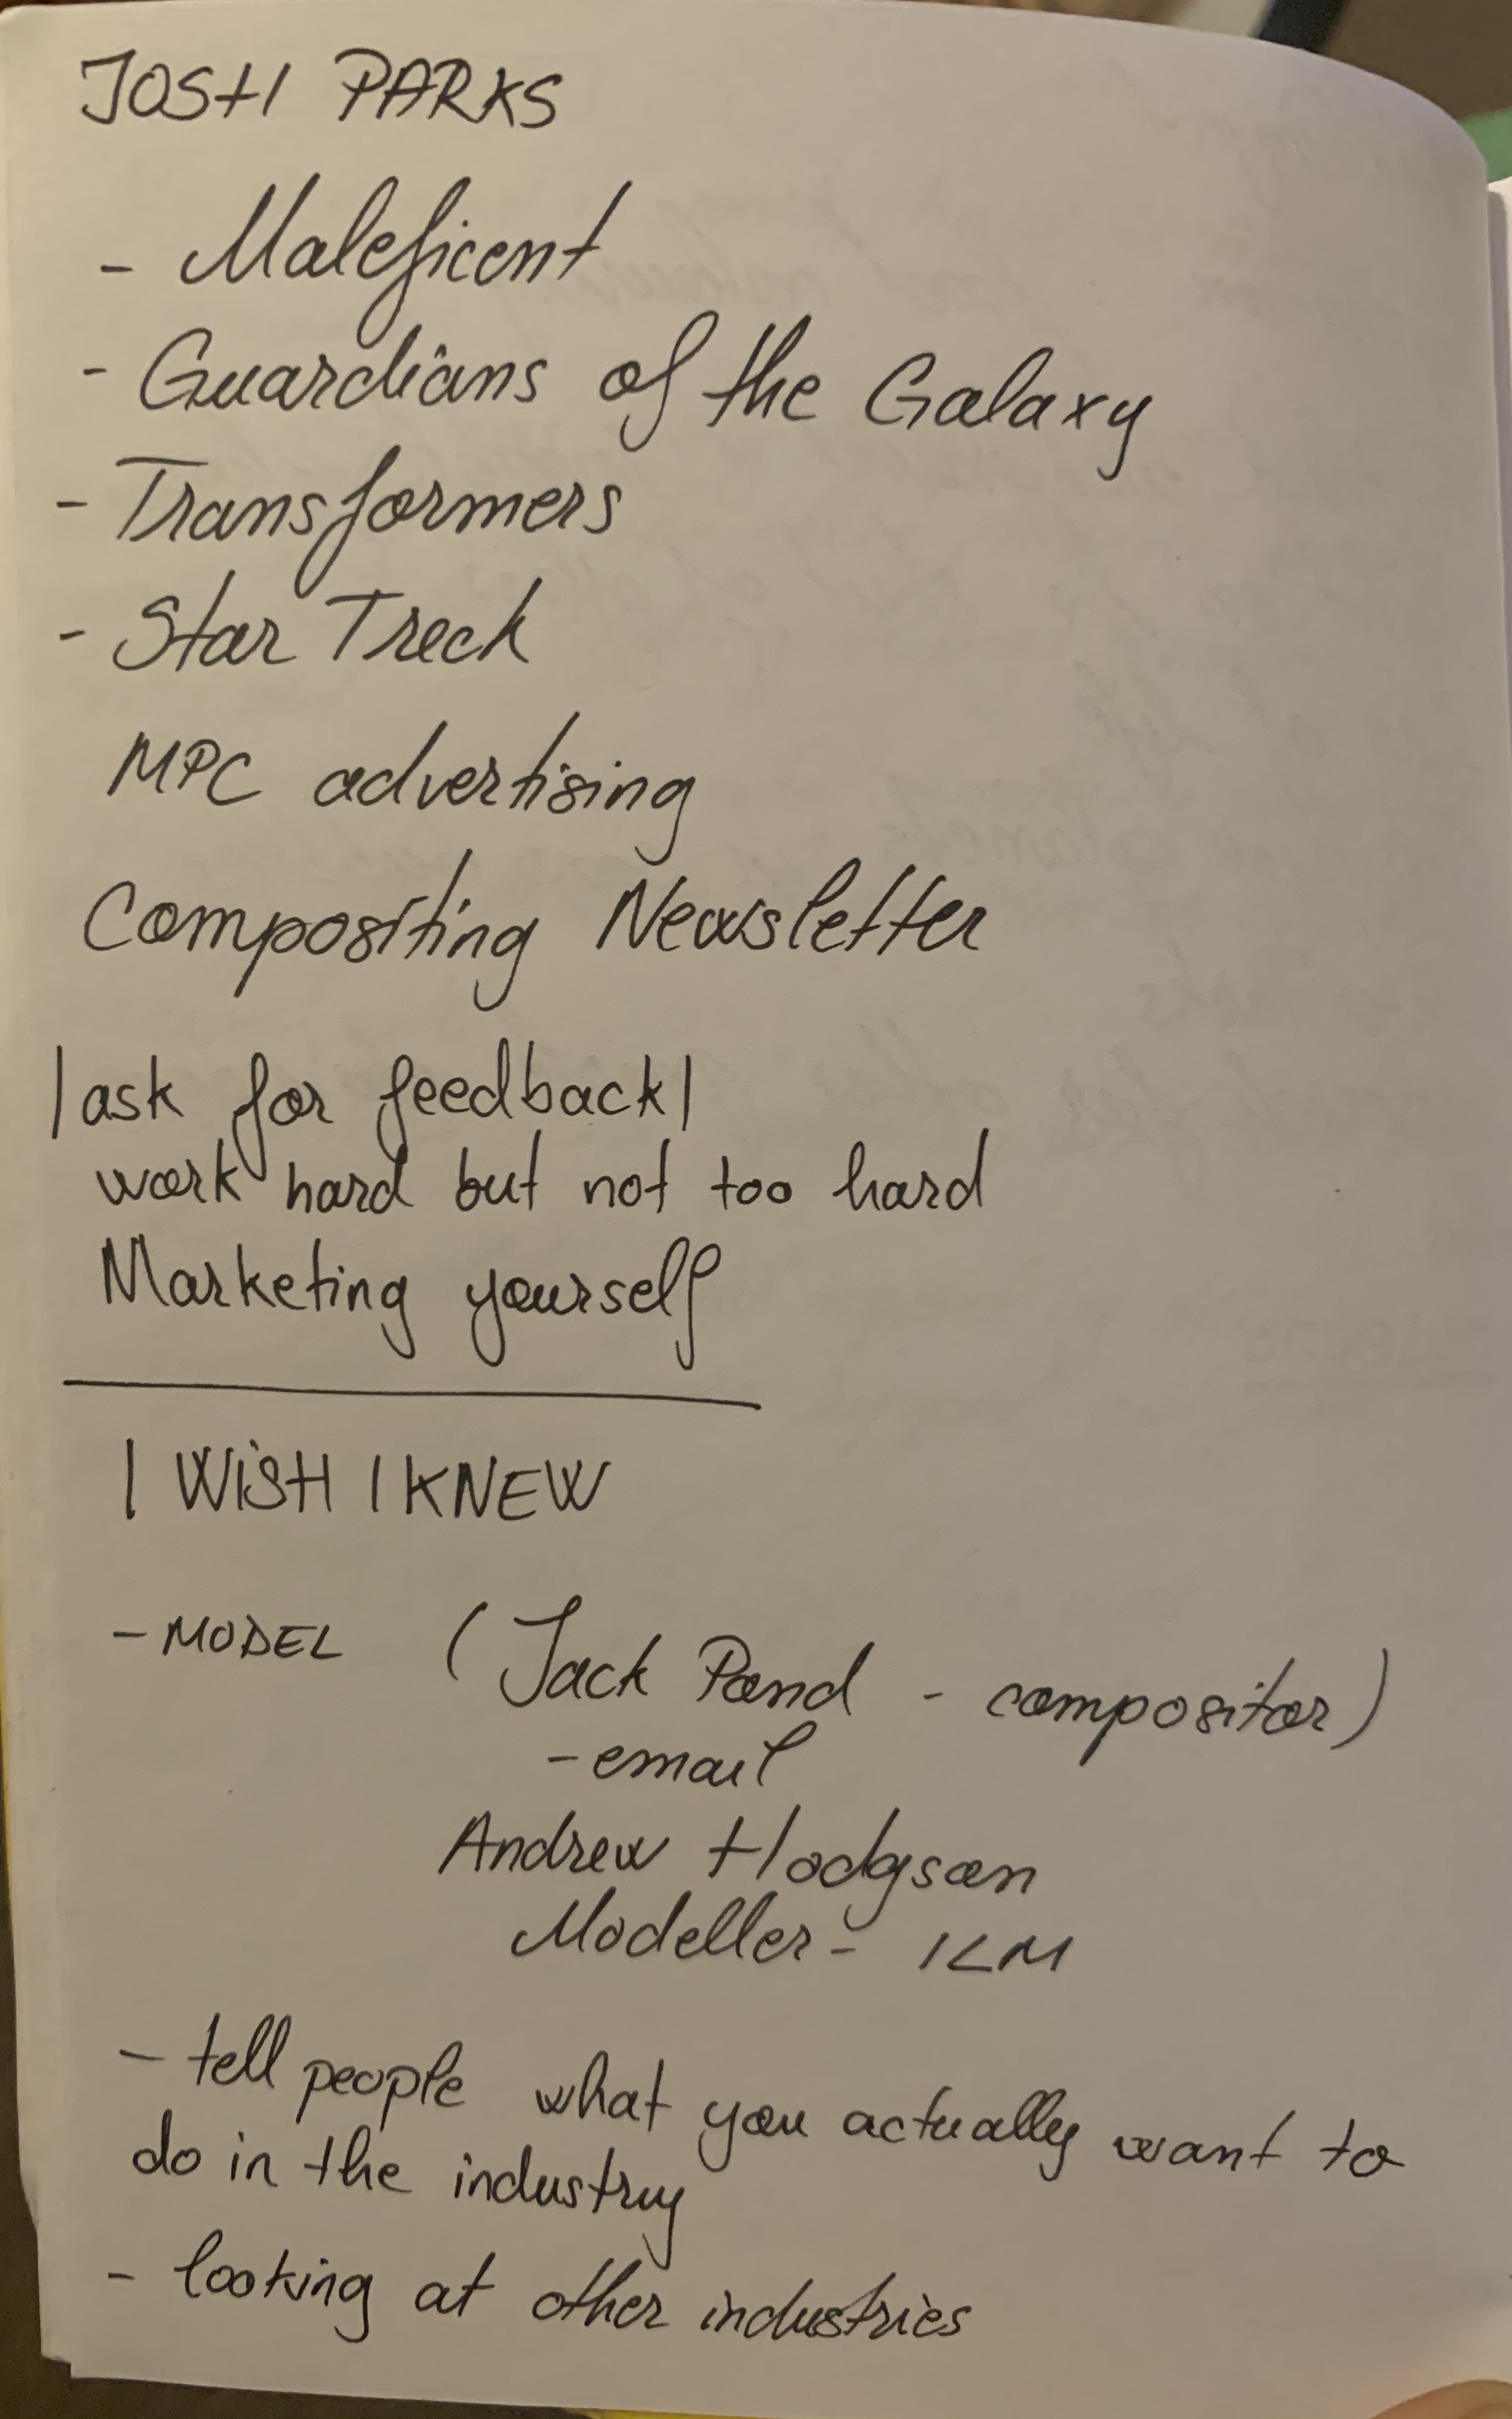 JOSH PARKS
- Maleficent
- Guardians of the Galaxy
- Transformers
- Star Treck
MPC advertising
Compositing Newsletter
|ask for feedback|
work hard but not too hard
Marketing yourself
I WiSH I KNEW
- MODEL (Jack Pond - compositor)
- email
Andrew Hodgson
Modeller - ILM
- tell people what you actually want to
do in the industry
- looking at other industries